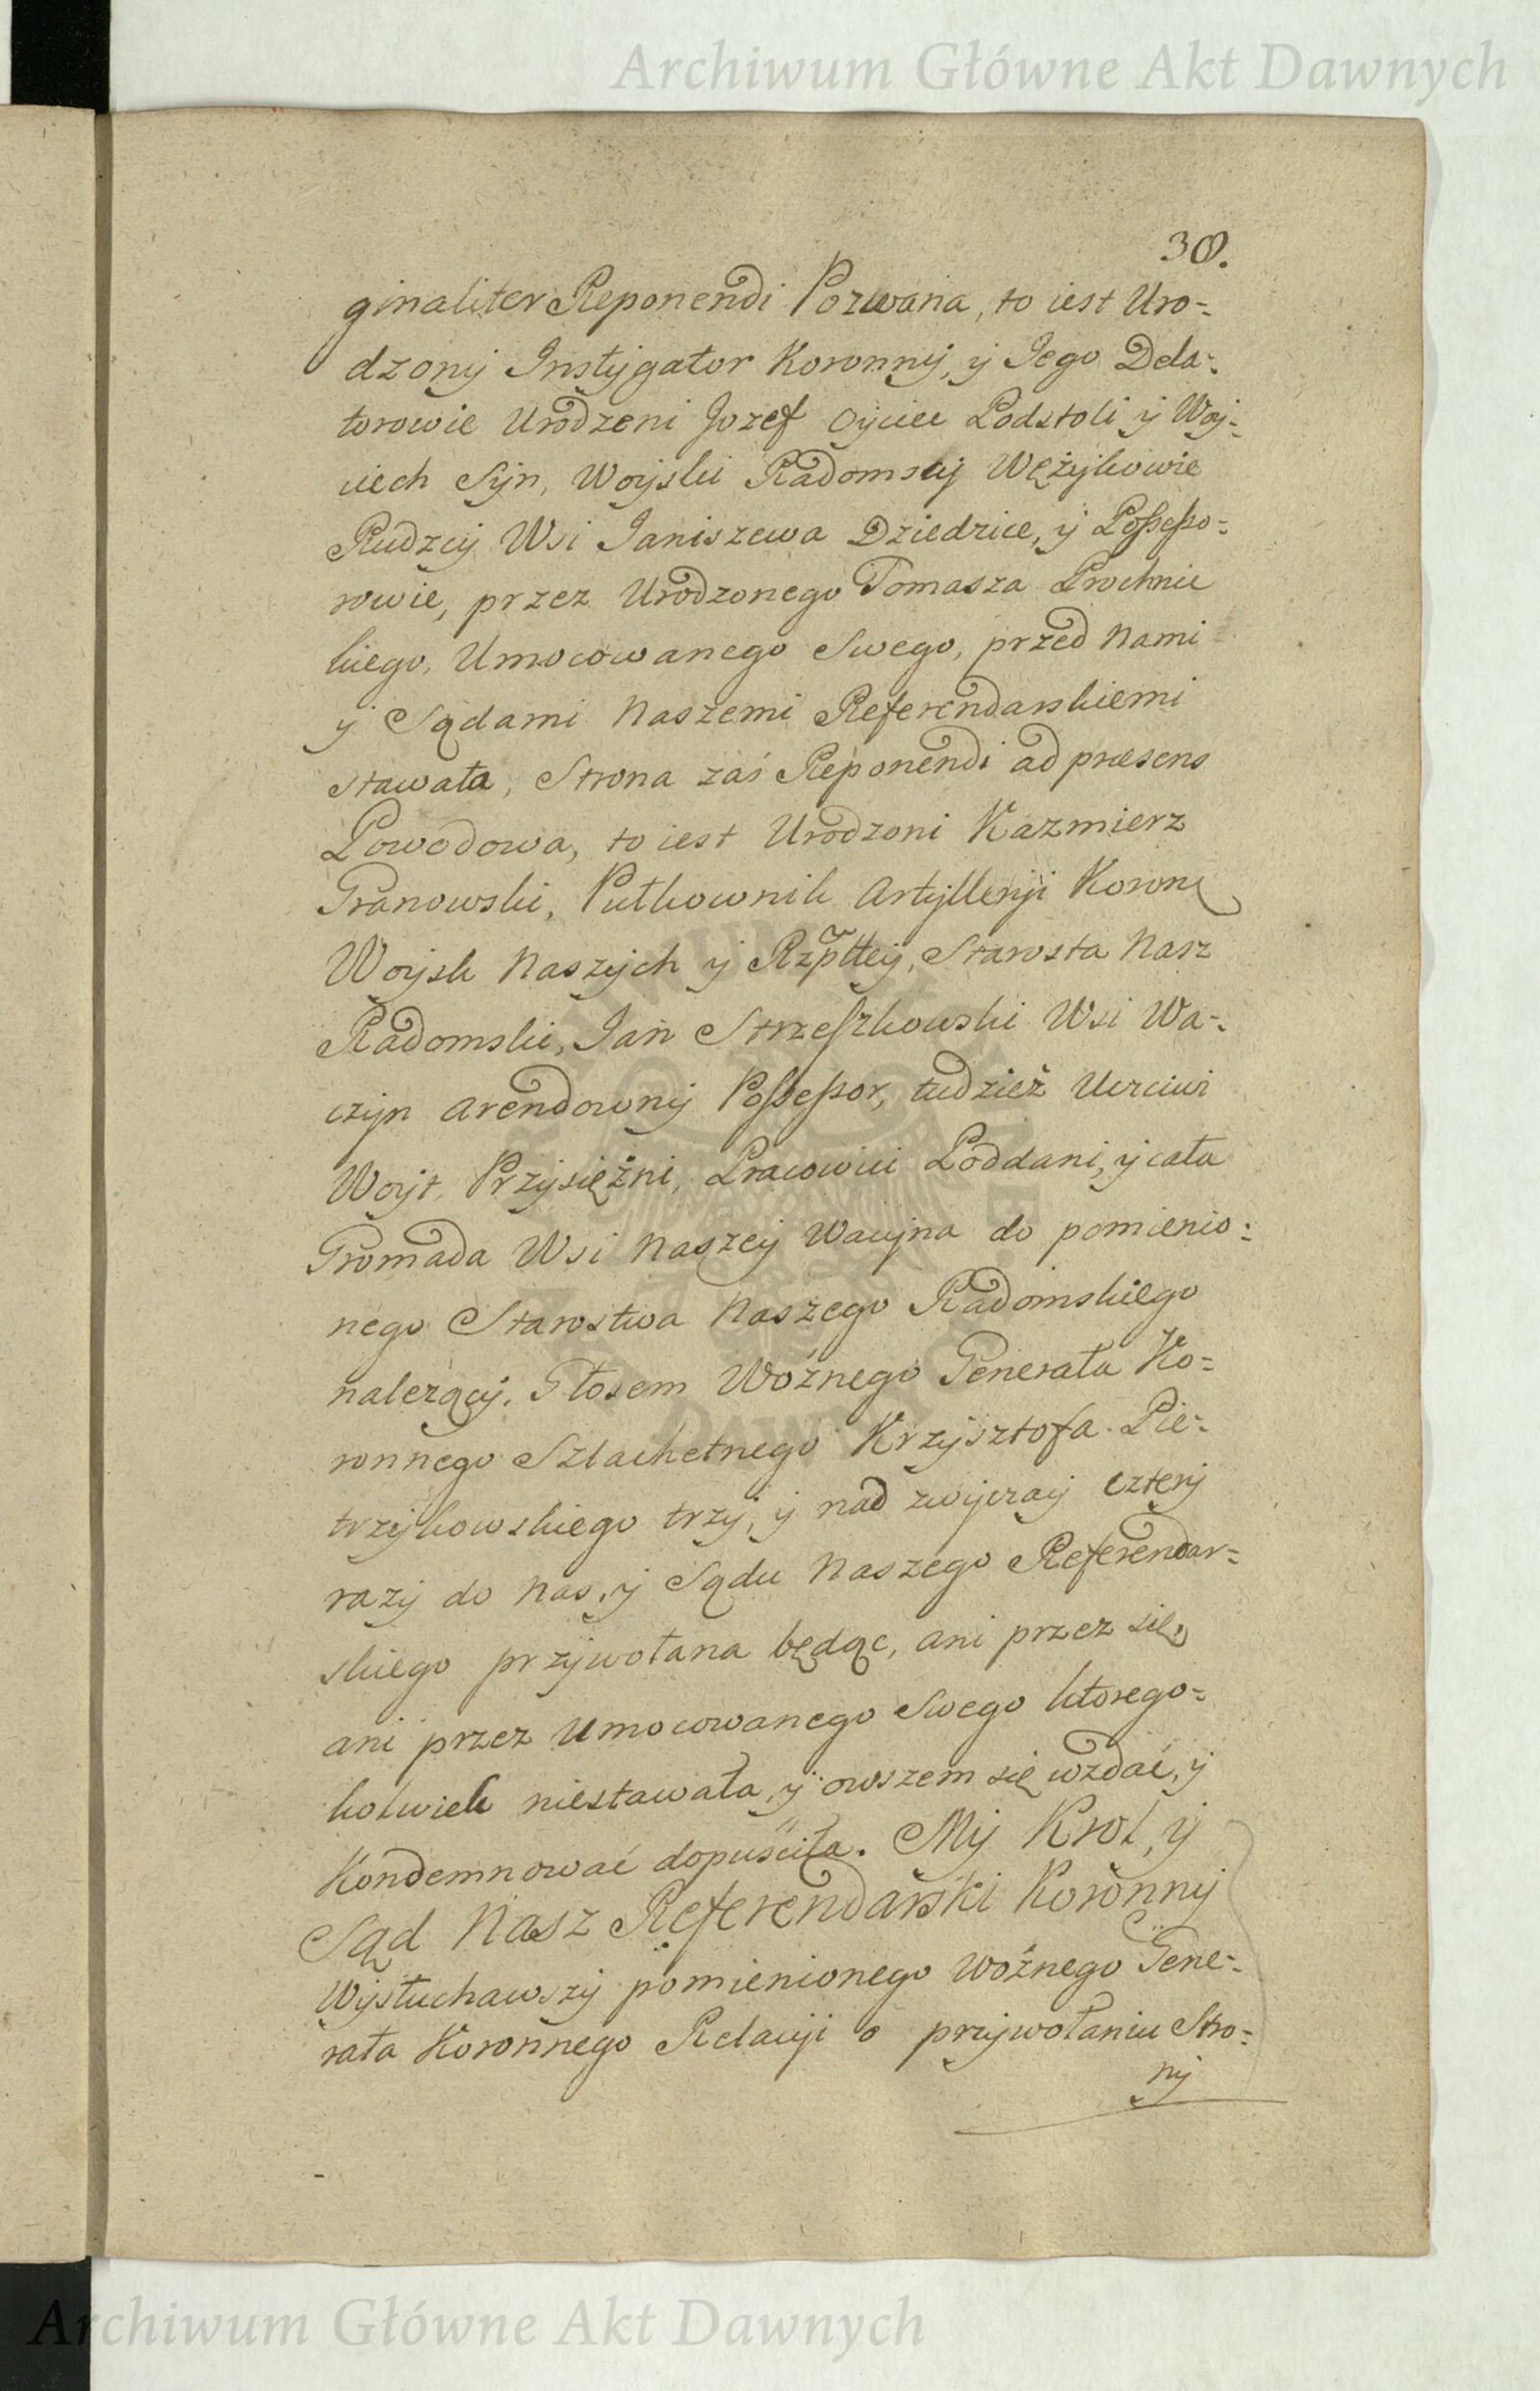 Archiwum Główne Akt Dawnych
38.
ginaliter Reponendi Pozwana, to iest Uro=
dzony Instygator Koronny, y Jego Dela=
torowie Urodzeni Jozef Oyciec Podstoli y Woy=
ciech Syn, Woyski Radomscy Wężykowie
Rudzcy Wsi Janiszewa Dziedzice, y Possesso=
rowie, przez Urodzonego Tomasza Prochnic
kiego, Umocowanego Swego, przed Nami
y Sądami Naszemi Referendarskiemi
stawała, Strona zaś Reponendi ad præsens
Powodowa, to iest Urodzoni Kazmierz
Granowski, Pułkownik Artylleryi Koronę
Woysk Naszych y Rzpltey, Starosta Nasz
Radomski, Jan Strzeszkowski Wsi Wa=
czyn Arendowny Possessor, tudzież Uczciwi
Woyt, Przysiężni, Pracowici Poddani, y cała
Gromada Wsi Naszey Wacyna do pomienio=
nego Starostwa Naszego Radomskiego
należącey. Głosem Woźnego Generała Ko=
ronnego Szlachetnego Krzysztofa Pie=
trzykowskiego trzy, y nad zwyczay cztery
razy do Nas, y Sądu Naszego Referendar=
skiego przywołana będąc, ani przez się,
ani przez Umocowanego Swego ktorego=
kolwiek niestawała, y owszem się wzdać, y
Kondemnować dopuściła. My Krol, y
Sąd Nasz Referendarski Koronny
Wysłuchawszy pomienionego Woźnego Gene=
rała Koronnego Relacyi o przywołaniu Stro=
ny
Archiwum Główne Akt Dawnych